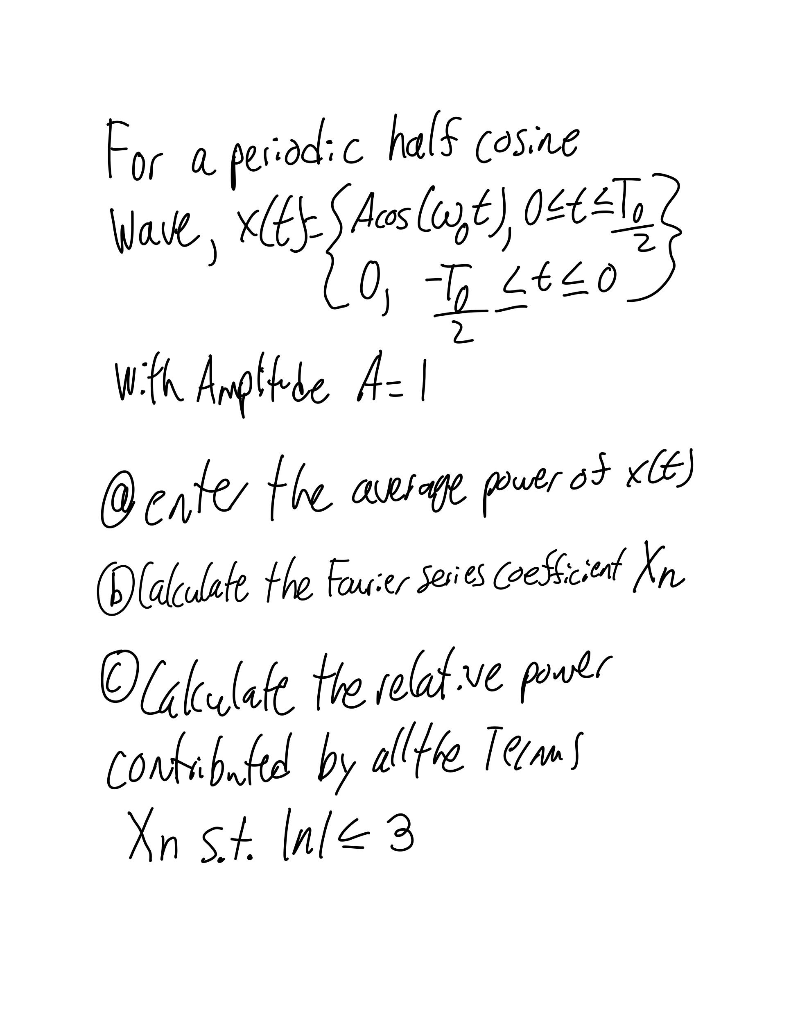 For a periodic half cosine
Wave, x(t)= { Acos(ω₀t), 0≤t≤T₀/2 }
{ 0, -T₀/2 ≤t≤0 }
with Ampltude A=1
ⓐ enter the average power of x(t)
ⓑ Calculate the Fourier series coefficient Xn
ⓒ Calculate the relative power
contributed by all the Terms
Xn s.t. |n|≤ 3